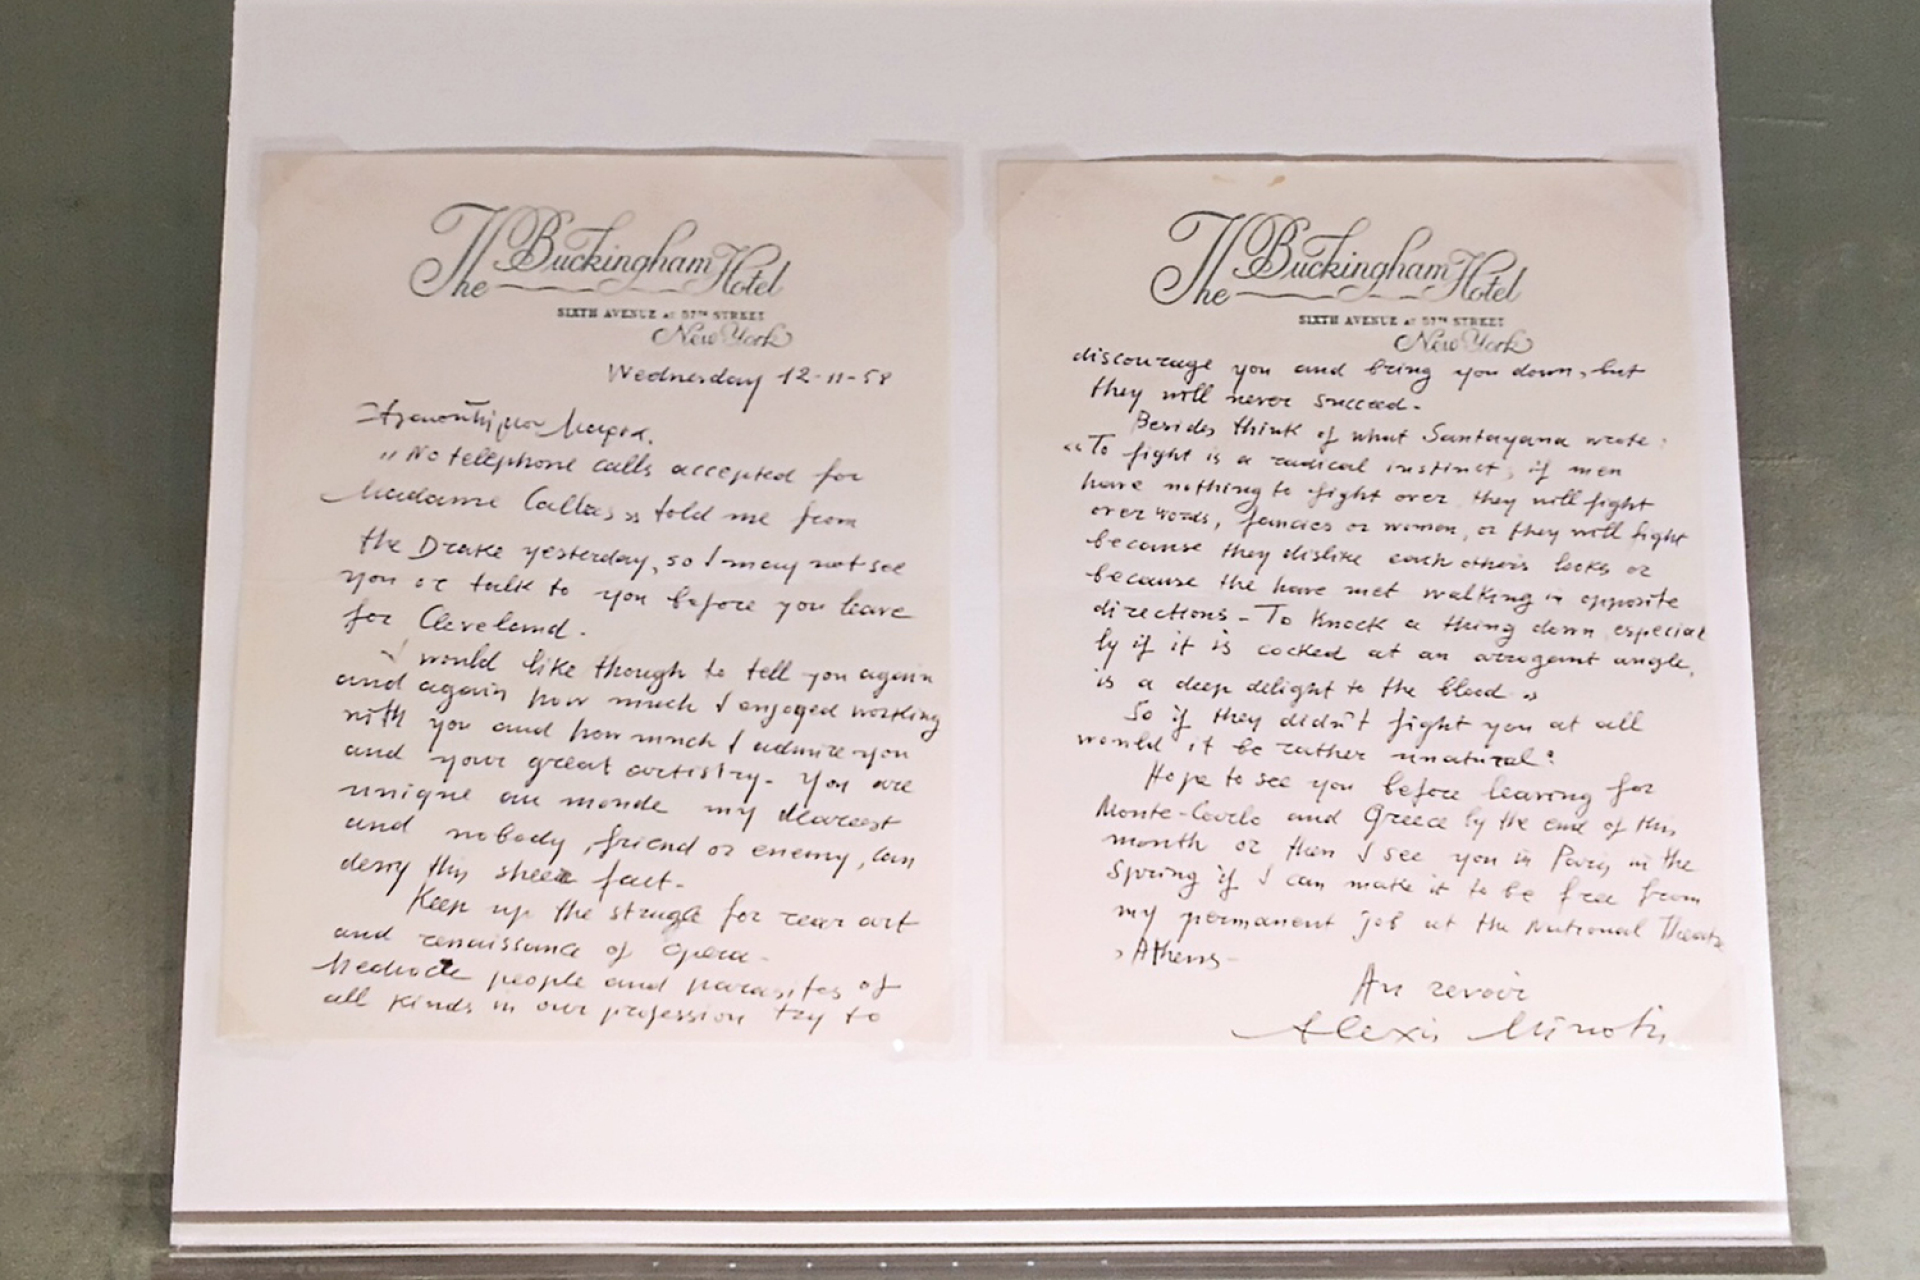 The Buckingham Hotel
SIXTH AVENUE AT 57TH STREET
New York
Wednesday 12-11-58
Ἀγαπητή μου Μαρία.
„ No telephone calls accepted for
Madame Callas „ told me from
the Drake yesterday, so I may not see
you or talk to you before you leave
for Cleveland.
I would like though to tell you again
and again how much I enjoyed working
with you and how much I admire you
and your great artistry. You are
unique au monde my dearest
and nobody, friend or enemy, can
deny this sheer fact.
Keep up the strugle for rear art
and renaissance of opera.
Mediocre people and parasites of
all kinds in our profession try to
The Buckingham Hotel
SIXTH AVENUE AT 57TH STREET
New York
discourage you and bring you down, but
they will never succeed.
Besides think of what Santayana wrote:
«To fight is a radical instinct; if men
have nothing to fight over they will fight
over words, fancies or women, or they will fight
because they dislike each others looks or
because the have met walking in opposite
directions - To knock a thing down especial
ly if it is cocked at an arrogant angle,
is a deep delight to the blood »
So if they didn't fight you at all
would it be rather unnatural?
Hope to see you before leaving for
Monte-Carlo and Greece by the end of this
month or then I see you in Paris in the
Spring if I can make it to be free from
my permanent job at the National Theatre
, Athens-
Au revoir
Alexis Minotis